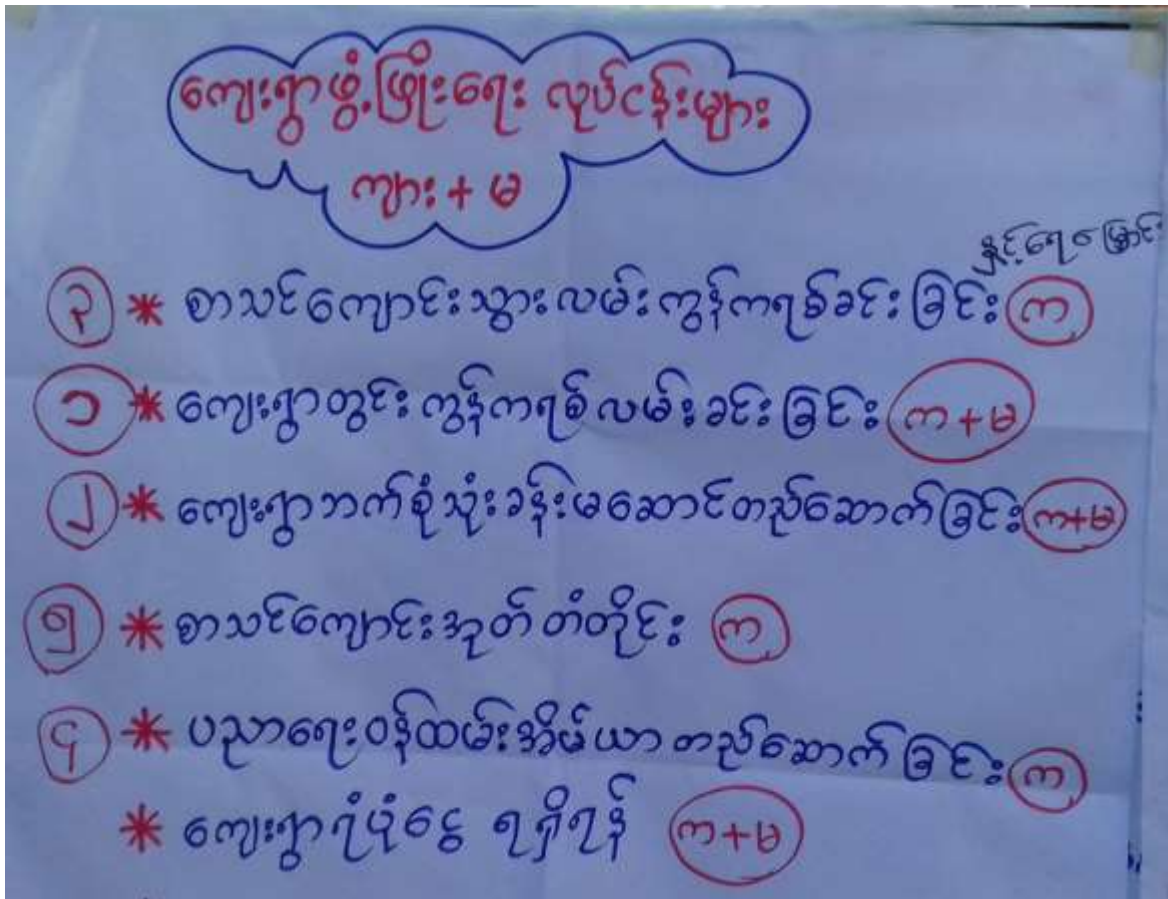 ကျေးရွာဖွံ့ဖြိုးရေး လုပ်ငန်းများ
ကျား + မ
နှင့်ရေမြောင်း
၃ * စာသင်ကျောင်းသွားလမ်းကွန်ကရစ်ခင်းခြင်း က
၁ * ကျေးရွာတွင်း ကွန်ကရစ်လမ်းခင်းခြင်း က+မ
၂ * ကျေးရွာဘက်စုံသုံးခန်းမဆောင်တည်ဆောက်ခြင်း က+မ
၅ * စာသင်ကျောင်းအုတ်တံတိုင်း က
၄ * ပညာရေးဝန်ထမ်းအိမ်ယာ တည်ဆောက်ခြင်း က
* ကျေးရွာရံပုံငွေ ရရှိရန် က+မ